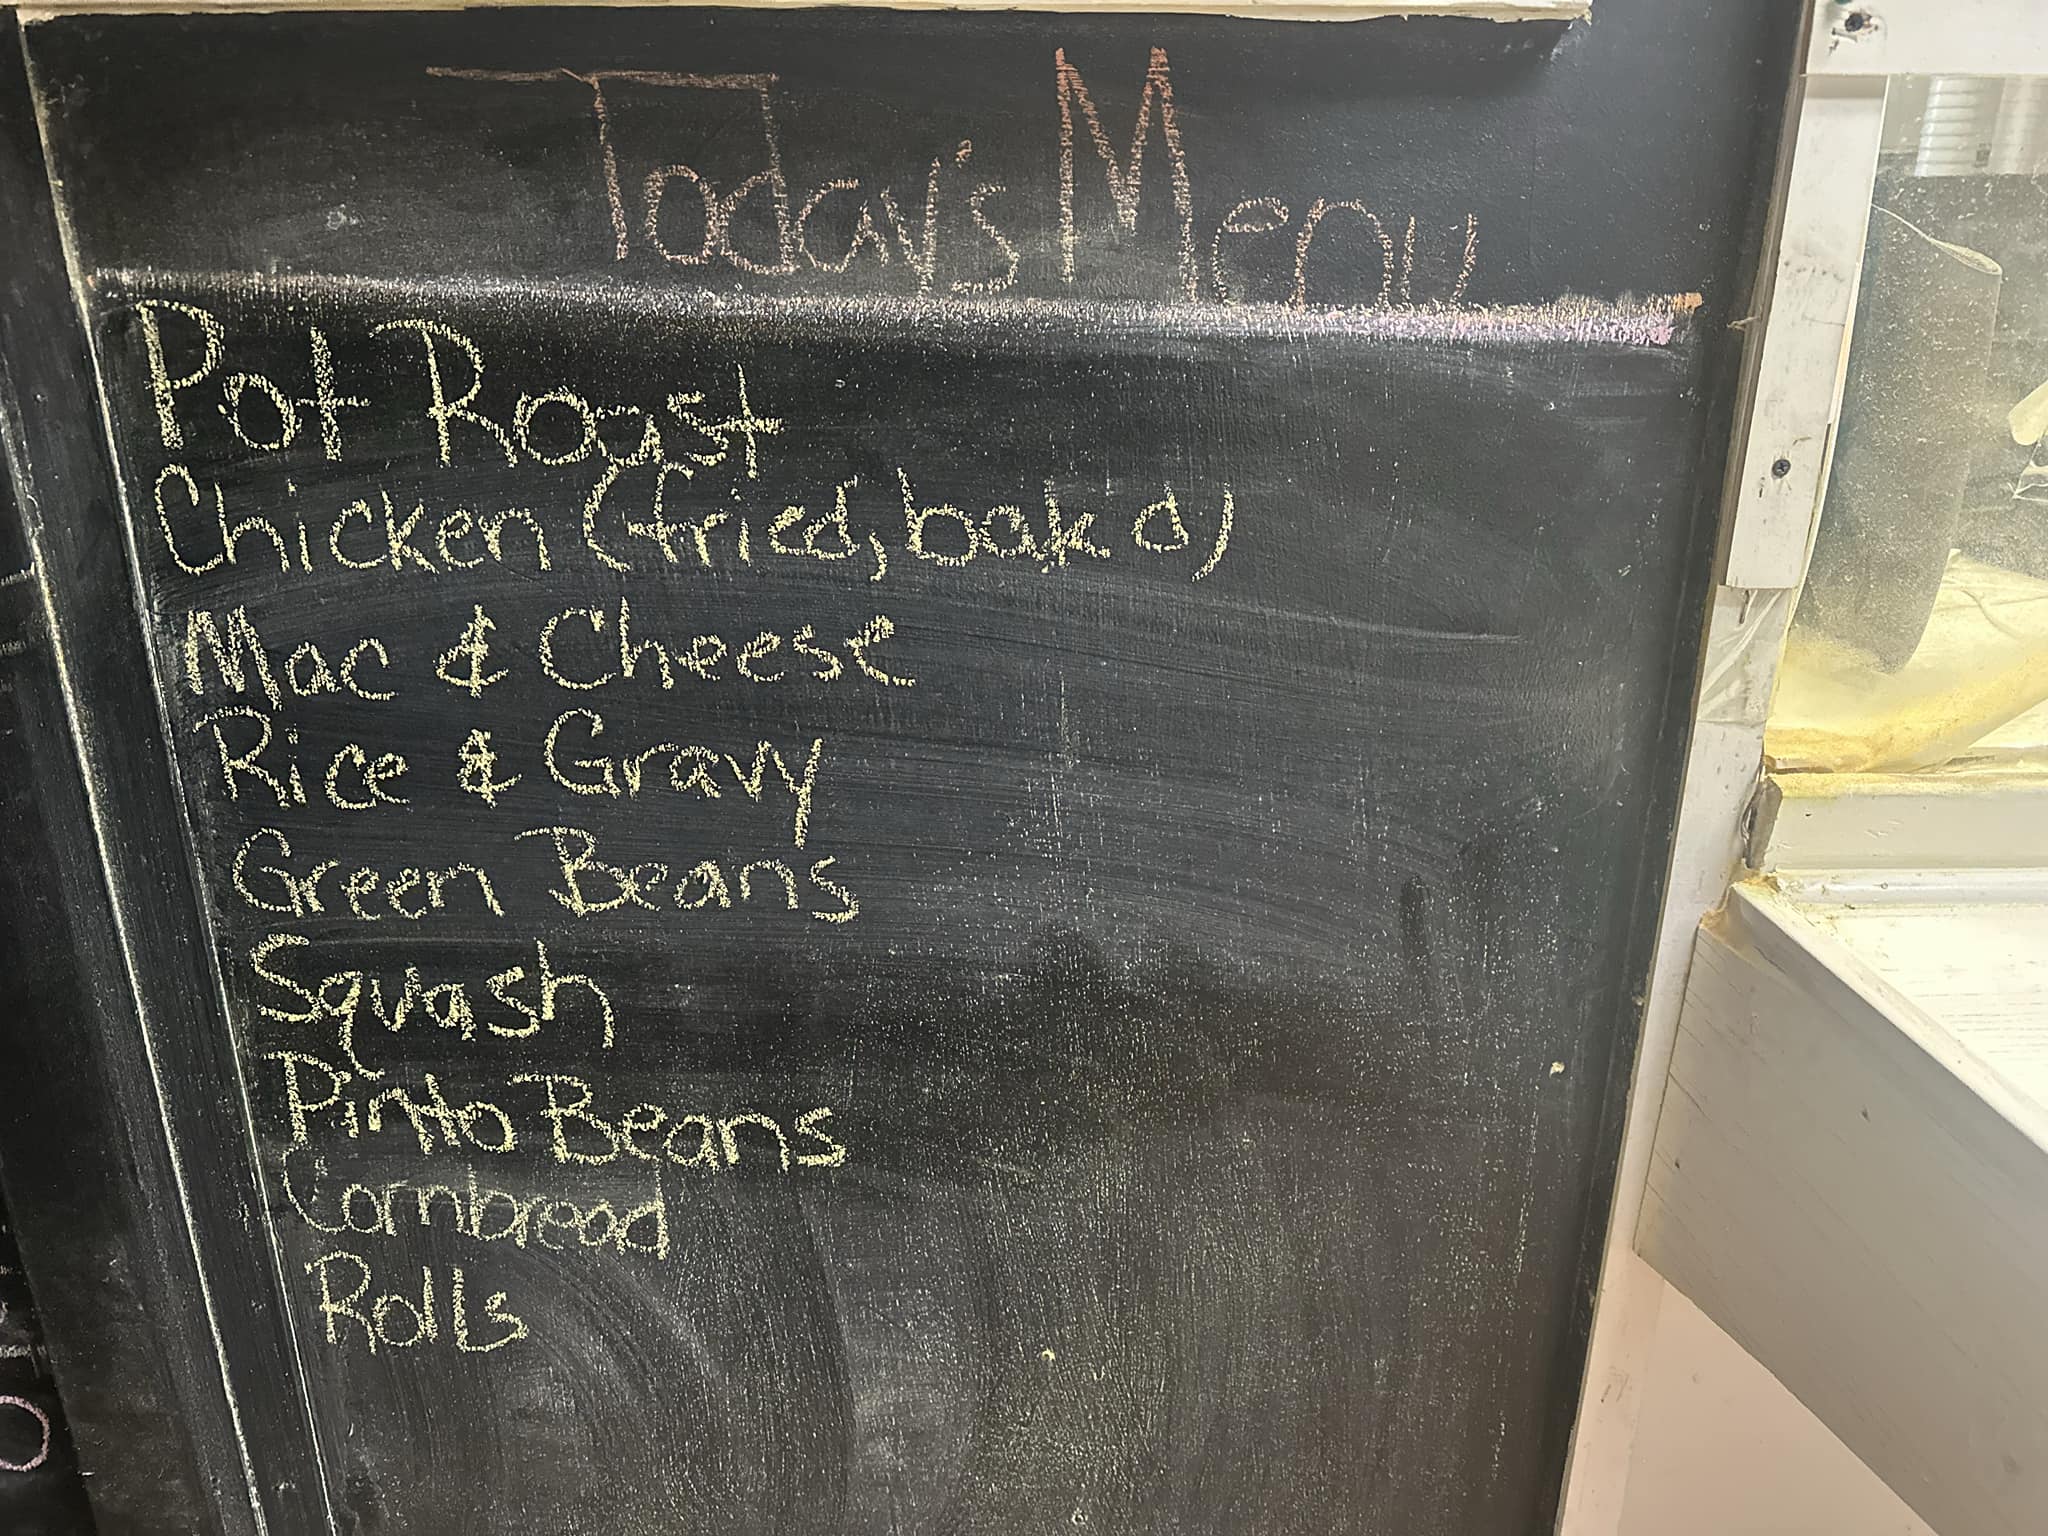 Today's Menu
Pot Roast
Chicken (fried, bak d)
Mac & Cheese
Rice & Gravy
Green Beans
Squash
Pinto Beans
Cornbread
Rolls